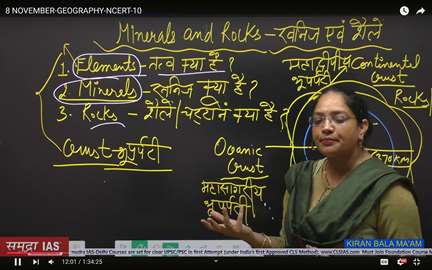 8 NOVEMBER-GEOGRAPHY-NCERT-10
Minerals and Rocks - खनिज एवं शैलें
1. Elements - तत्व क्या है?
2. Minerals - खनिज क्या है?
3. Rocks - शैलें / चट्टानें क्या है?
Crust भूपर्पटी
महाद्वीपीय Continental
भूपर्पटी Crust
Rocks
Oceanic
Crust
महासागरीय
भूपर्पटी
समुद्रा IAS
KIRAN BALA MA'AM
mudra IAS-Delhi Courses are set for clear UPSC/PSC in first Attempt (under India's first Approved CLS Method). www.CLSIAS.com Must Join Foundation Course
12:01 / 1:34:25